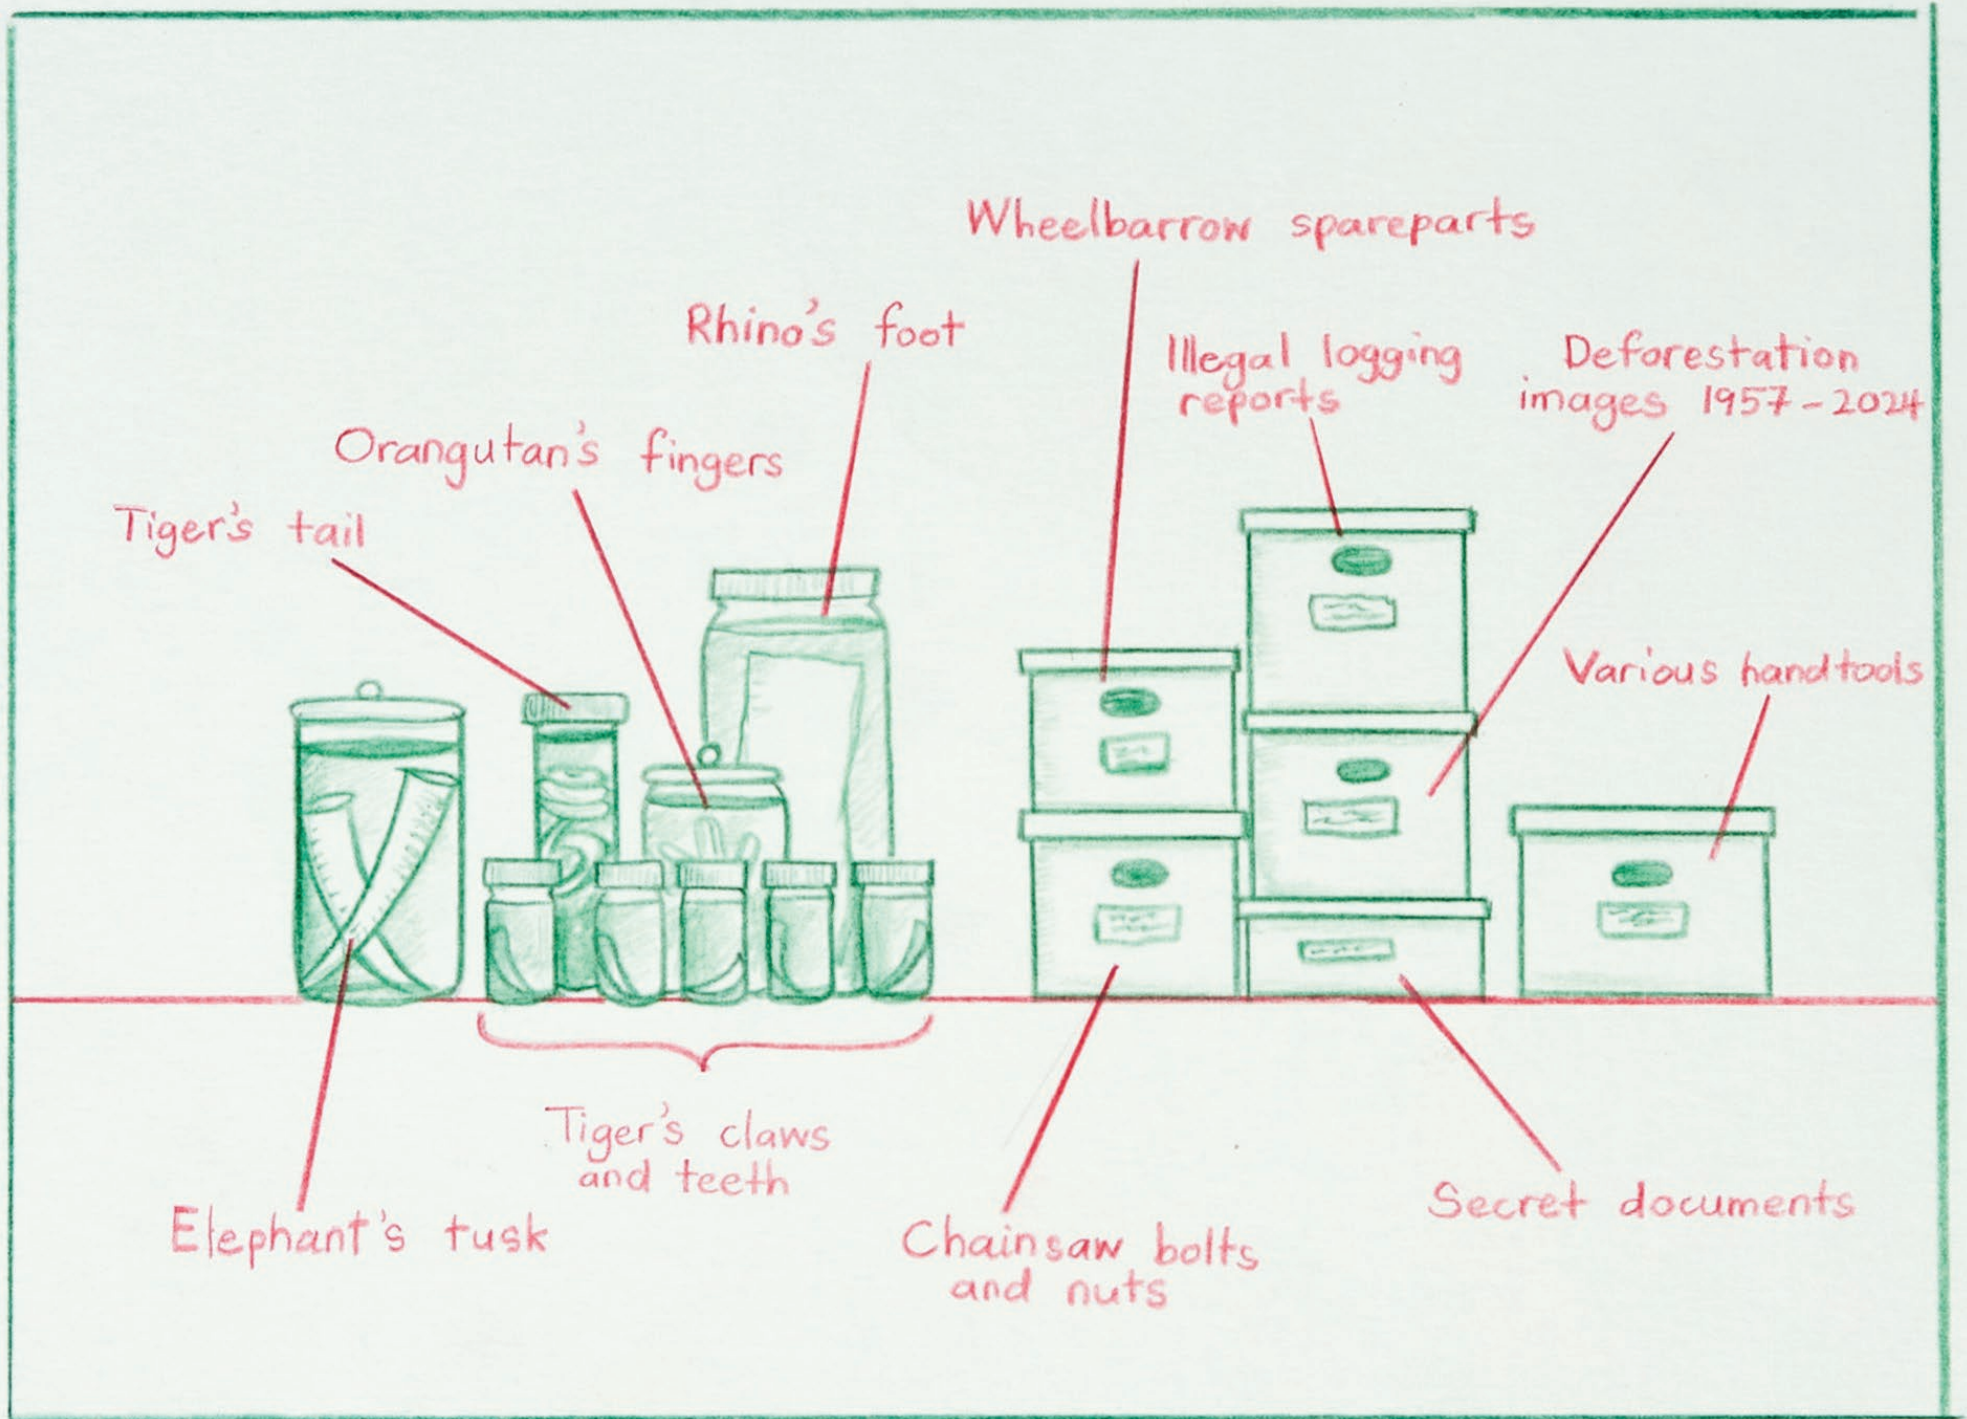 Wheelbarrow spareparts
Rhino's foot
Illegal logging
reports
Deforestation
images 1957-2024
Orangutan's fingers
Tiger's tail
Various handtools
Tiger's claws
and teeth
Elephant's tusk
Chainsaw bolts
and nuts
Secret documents